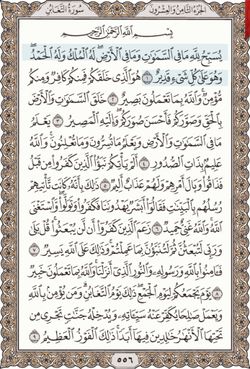 الجزء الثامن والعشرون سورة التغابن
بِسْمِ اللَّهِ الرَّحْمَٰنِ الرَّحِيمِ
يُسَبِّحُ لِلَّهِ مَا فِي السَّمَاوَاتِ وَمَا فِي الْأَرْضِ لَهُ الْمُلْكُ وَلَهُ الْحَمْدُ
وَهُوَ عَلَىٰ كُلِّ شَيْءٍ قَدِيرٌ ١ هُوَ الَّذِي خَلَقَكُمْ فَمِنكُمْ كَافِرٌ وَمِنكُم
مُّؤْمِنٌ وَاللَّهُ بِمَا تَعْمَلُونَ بَصِيرٌ ٢ خَلَقَ السَّمَاوَاتِ وَالْأَرْضَ
بِالْحَقِّ وَصَوَّرَكُمْ فَأَحْسَنَ صُوَرَكُمْ وَإِلَيْهِ الْمَصِيرُ ٣ يَعْلَمُ
مَا فِي السَّمَاوَاتِ وَالْأَرْضِ وَيَعْلَمُ مَا تُسِرُّونَ وَمَا تُعْلِنُونَ وَاللَّهُ
عَلِيمٌ بِذَاتِ الصُّدُورِ ٤ أَلَمْ يَأْتِكُمْ نَبَأُ الَّذِينَ كَفَرُوا مِن قَبْلُ
فَذَاقُوا وَبَالَ أَمْرِهِمْ وَلَهُمْ عَذَابٌ أَلِيمٌ ٥ ذَٰلِكَ بِأَنَّهُ كَانَت تَّأْتِيهِمْ
رُسُلُهُم بِالْبَيِّنَاتِ فَقَالُوا أَبَشَرٌ يَهْدُونَنَا فَكَفَرُوا وَتَوَلَّوا وَّاسْتَغْنَى
اللَّهُ وَاللَّهُ غَنِيٌّ حَمِيدٌ ٦ زَعَمَ الَّذِينَ كَفَرُوا أَن لَّن يُبْعَثُوا قُلْ بَلَىٰ
وَرَبِّي لَتُبْعَثُنَّ ثُمَّ لَتُنَبَّؤُنَّ بِمَا عَمِلْتُمْ وَذَٰلِكَ عَلَى اللَّهِ يَسِيرٌ ٧
فَآمِنُوا بِاللَّهِ وَرَسُولِهِ وَالنُّورِ الَّذِي أَنزَلْنَا وَاللَّهُ بِمَا تَعْمَلُونَ خَبِيرٌ
٨ يَوْمَ يَجْمَعُكُمْ لِيَوْمِ الْجَمْعِ ذَٰلِكَ يَوْمُ التَّغَابُنِ وَمَن يُؤْمِن بِاللَّهِ
وَيَعْمَلْ صَالِحًا يُكَفِّرْ عَنْهُ سَيِّئَاتِهِ وَيُدْخِلْهُ جَنَّاتٍ تَجْرِي مِن
تَحْتِهَا الْأَنْهَارُ خَالِدِينَ فِيهَا أَبَدًا ذَٰلِكَ الْفَوْزُ الْعَظِيمُ ٩
٥٥٦